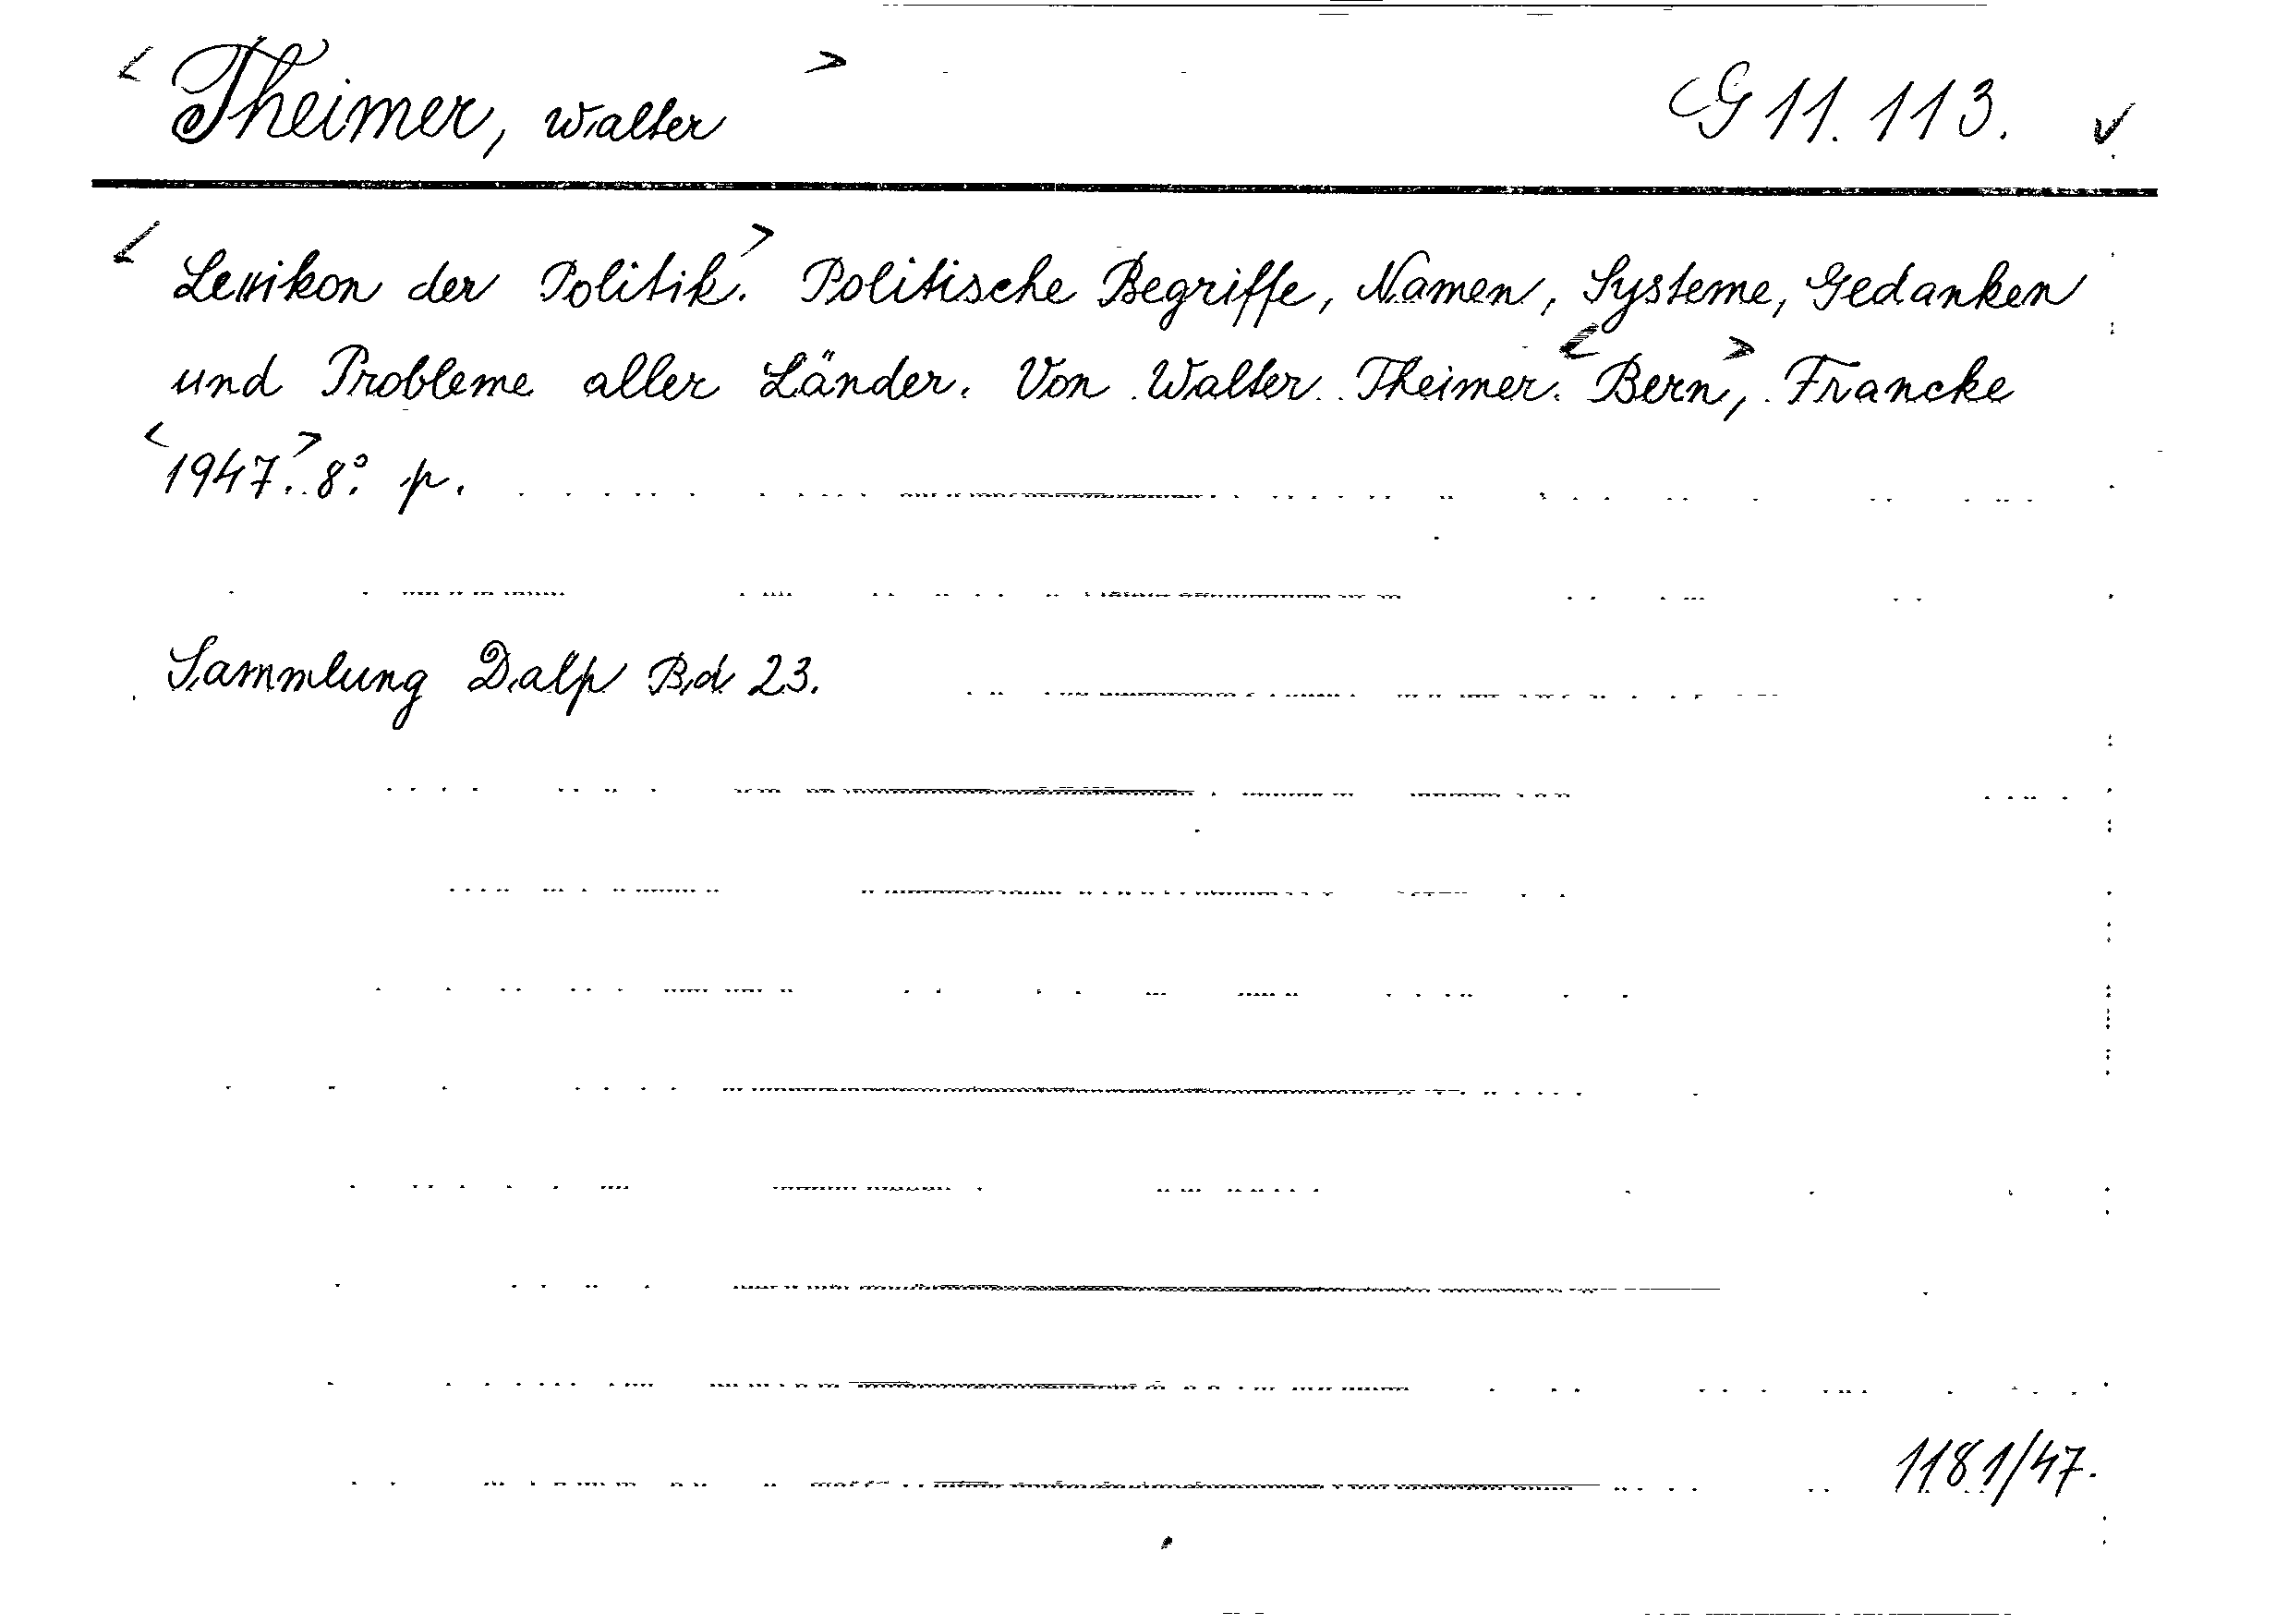 < Theimer, Walter > G 11.113. v
< Lexikon der Politik.> Politische Begriffe, Namen, Systeme, Gedanken
und Probleme aller Länder. Von Walter Theimer. <Bern>, Francke
<1947.> 8° p.
Sammlung Dalp Bd 23.
1181/47.